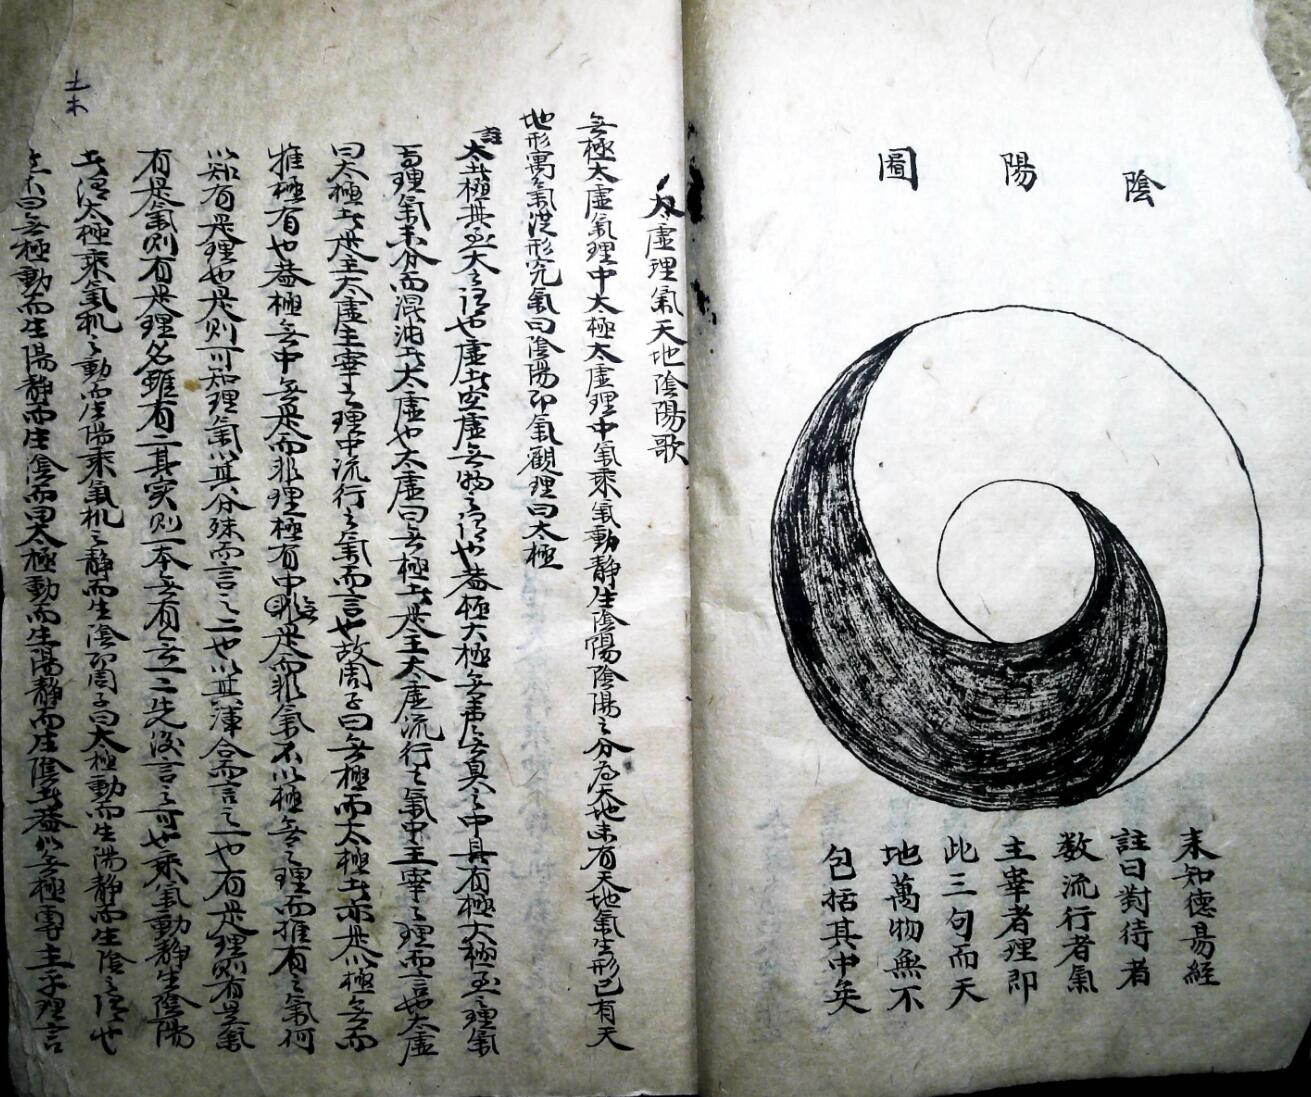 陰陽圖
耒知德易經
註曰對待者
数流行者氣
主宰者理即
此三句而天
地萬物無不
包括其中矣
太虛理氣天地陰陽歌
無極太虛氣理中太極太虛理中氣乘氣動靜生陰陽陰陽之分為天地未有天地氣生形已有天
地形寓氣從形究氣曰陰陽即氣觀理曰太極
註
太者極其至大之謂也虛者空虛無物之謂也蓋極大極無之中具有極大極至之理氣
言理氣未分而混沌者太虛也太虛曰無極者是主太虛流行之氣中主宰之理而言也太虛
曰太極者是主太虛主宰之理中流行之氣而言也故周子曰無極而太極者亦是從極無而
推極有也蓋極無中無是而非理極有中無是而非氣不以極無之理而推有之氣何
以知有是理也是則可知理氣以其分殊而言之二也以其渾合而言之一也有是理則有是氣
有是氣則有是理名雖有二其實則一本無有無之二先後言之可也乘氣動靜生陰陽
者謂太極乘氣机之動而生陽乘氣机之靜而生陰即周子曰太極動而生陽靜而生陰之謂也
曰無極動而生陽靜而生陰而曰太極動而生陽靜而生陰者蓋以無極專主乎理言